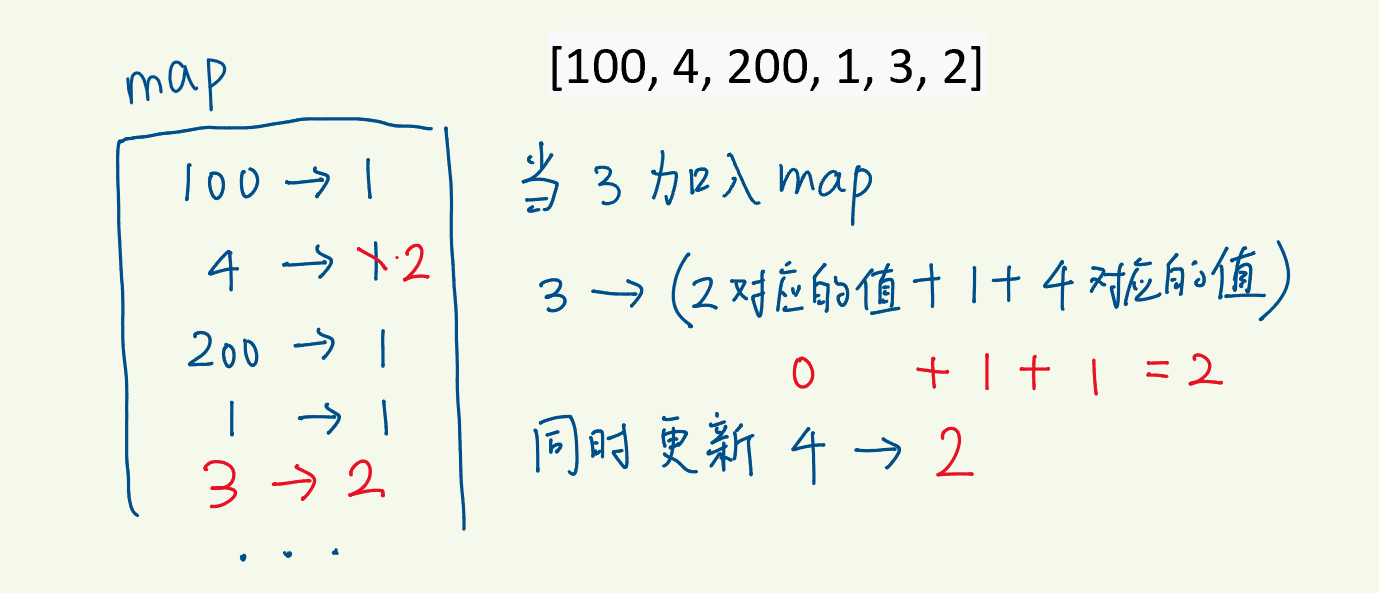 map
[100, 4, 200, 1, 3, 2]
100 → 1
4 → 1 2
200 → 1
1 → 1
3 → 2
...
当 3 加入 map
3 → (2对应的值 + 1 + 4对应的值)
0 + 1 + 1 = 2
同时更新 4 → 2